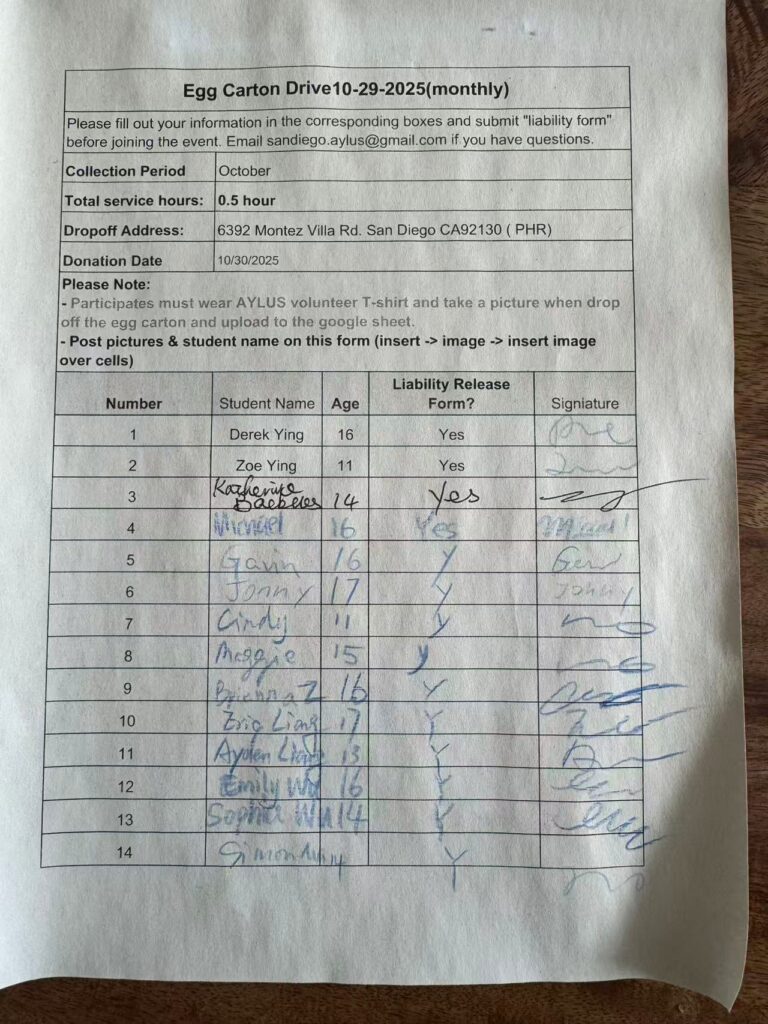 Egg Carton Drive10-29-2025(monthly)
Please fill out your information in the corresponding boxes and submit "liability form"
before joining the event. Email sandiego.aylus@gmail.com if you have questions.
Collection Period October
Total service hours: 0.5 hour
Dropoff Address: 6392 Montez Villa Rd. San Diego CA92130 ( PHR)
Donation Date 10/30/2025
Please Note:
- Participates must wear AYLUS volunteer T-shirt and take a picture when drop
off the egg carton and upload to the google sheet.
- Post pictures & student name on this form (insert -> image -> insert image
over cells)
Number Student Name Age Liability Release Form? Signiature
1 Derek Ying 16 Yes
2 Zoe Ying 11 Yes
3 Katherine 14 Yes
4 16 Yes
5 Gavin 16 Y
6 Jonny 17 Y Jonny
7 Cindy 11 Y
8 Maggie 15 y
9 Brianna Z 16 Y
10 Eric Liang 17 Y
11 Ayden Liang 13 Y
12 Emily Wu 16 Y
13 Sophia Wu 14 Y
14 Simon 14 Y